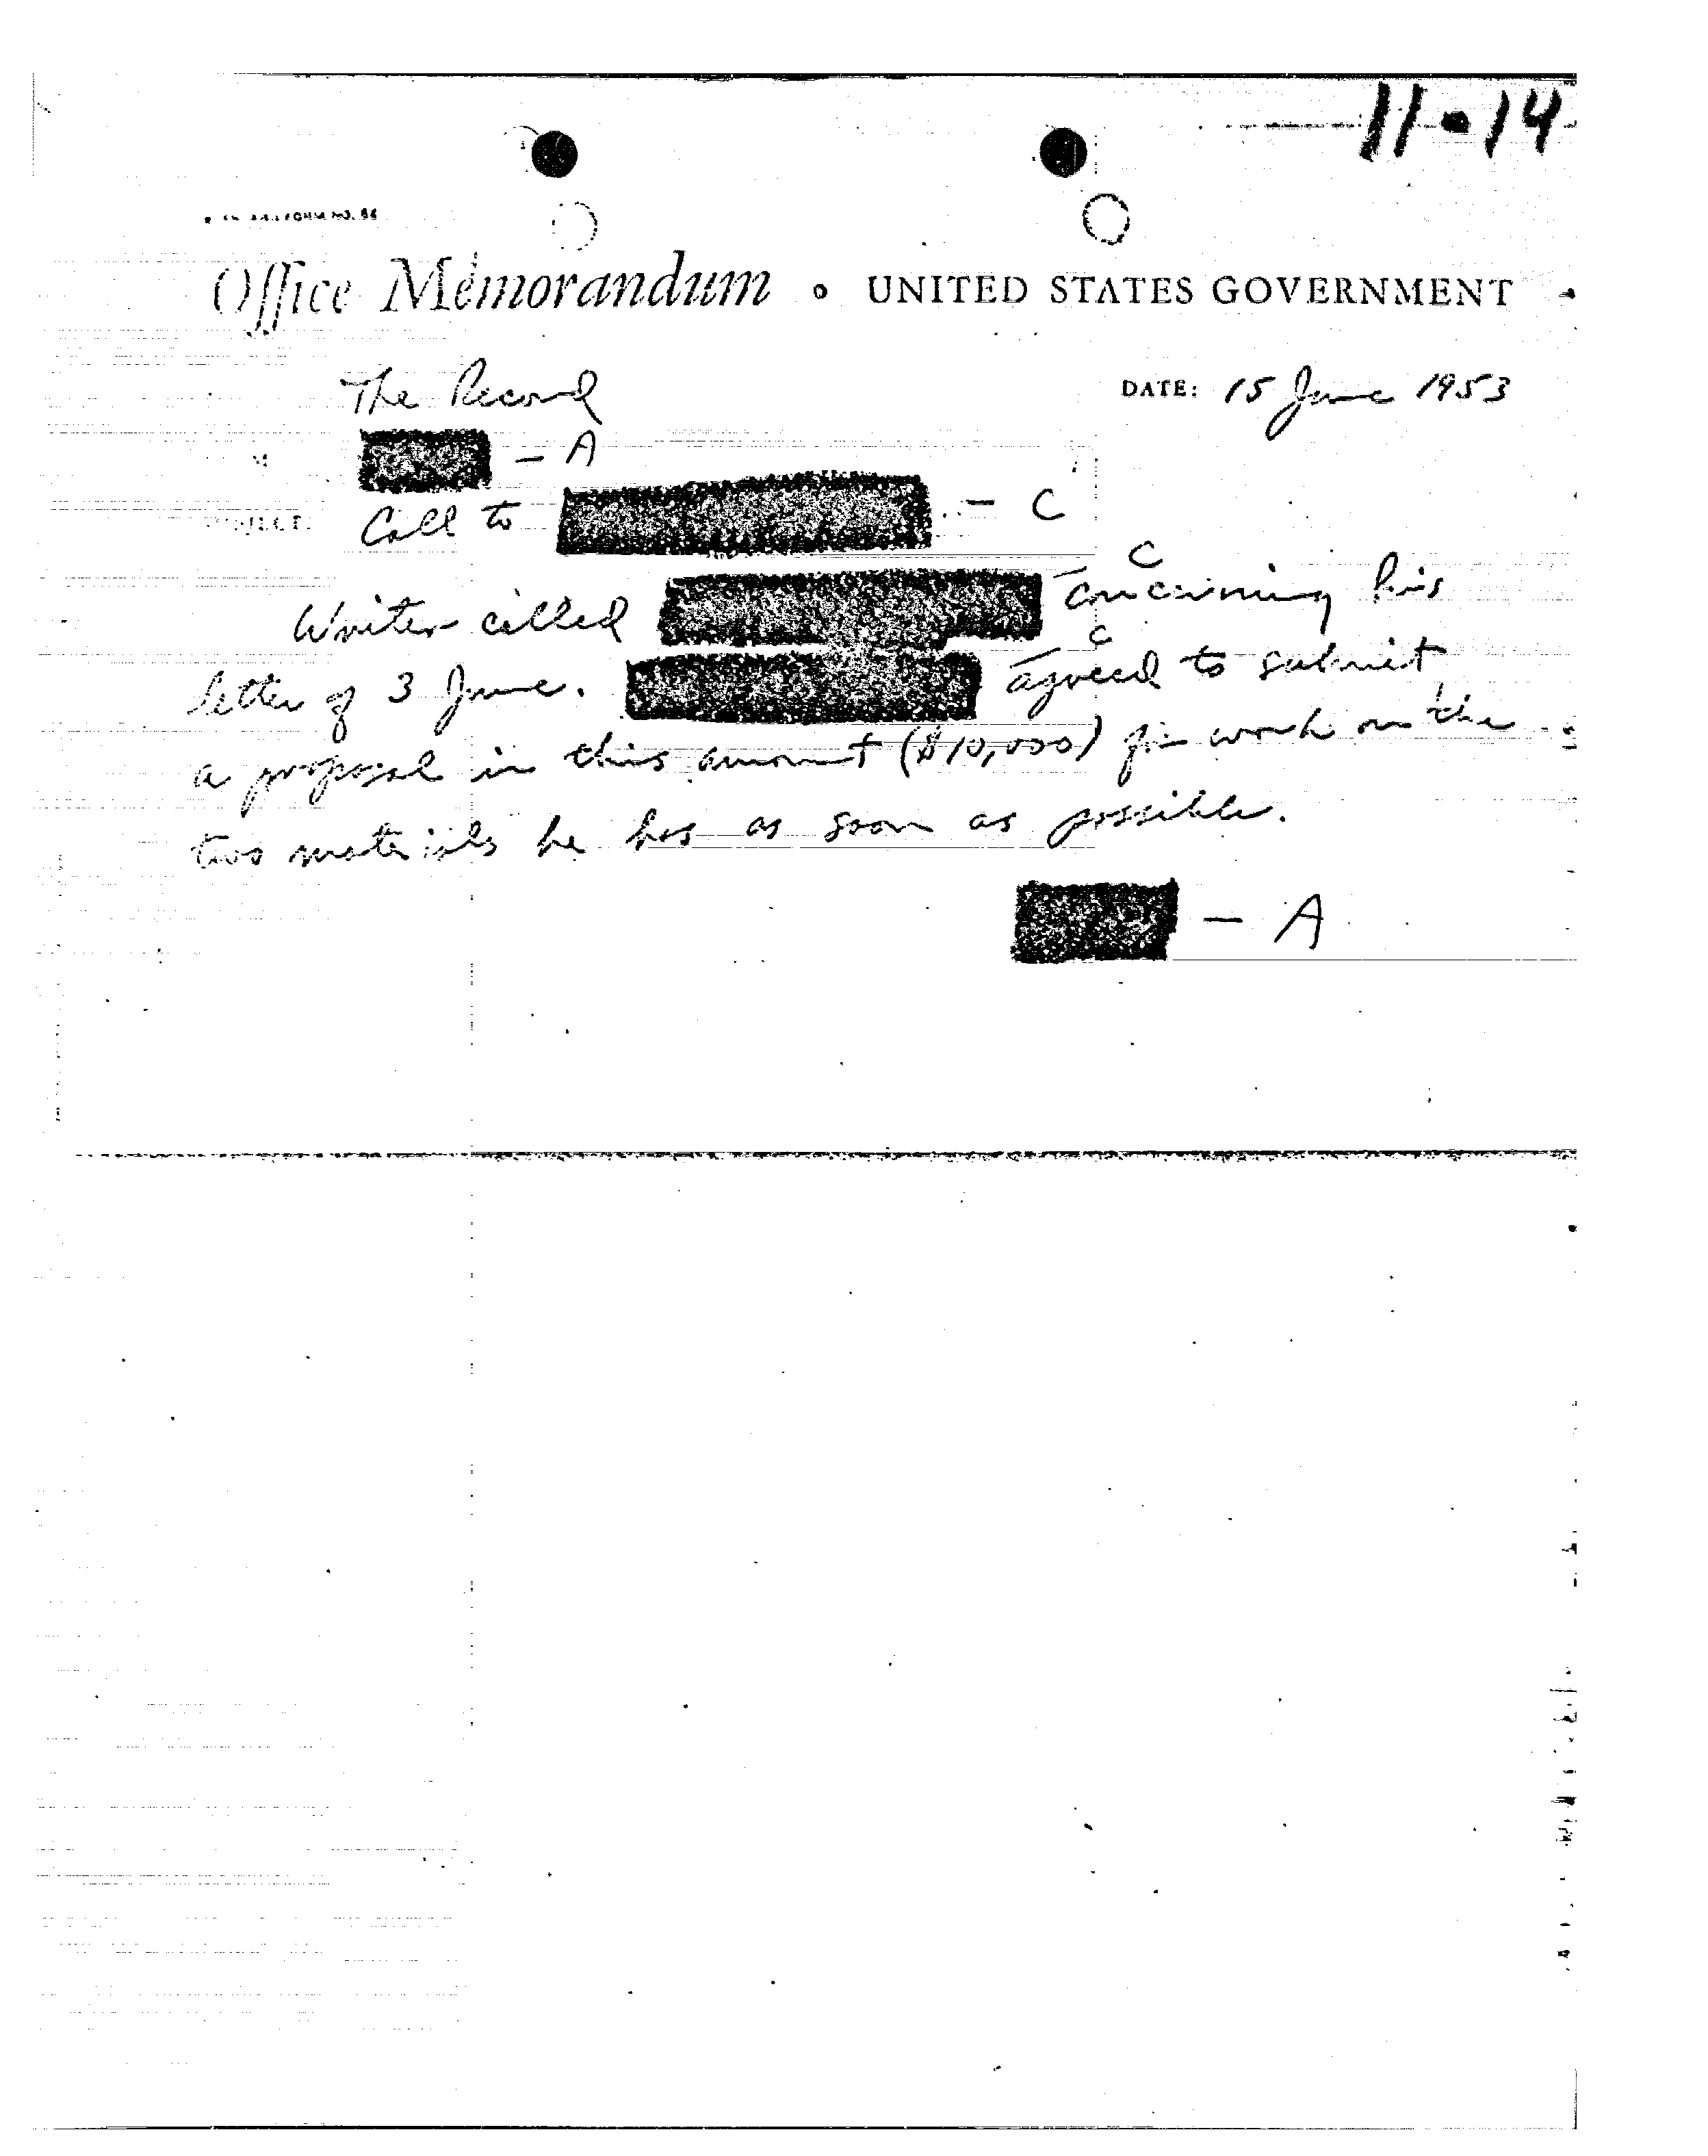 11-14
FORM NO. 64
Office Memorandum • UNITED STATES GOVERNMENT
The Record
DATE: 15 June 1953
- A
SUBJECT: Call to - C
C
Writer called concerning his
C
letter of 3 June. agreed to submit
a proposal in this amount ($10,000) for work on the
two materials he has as soon as possible.
- A